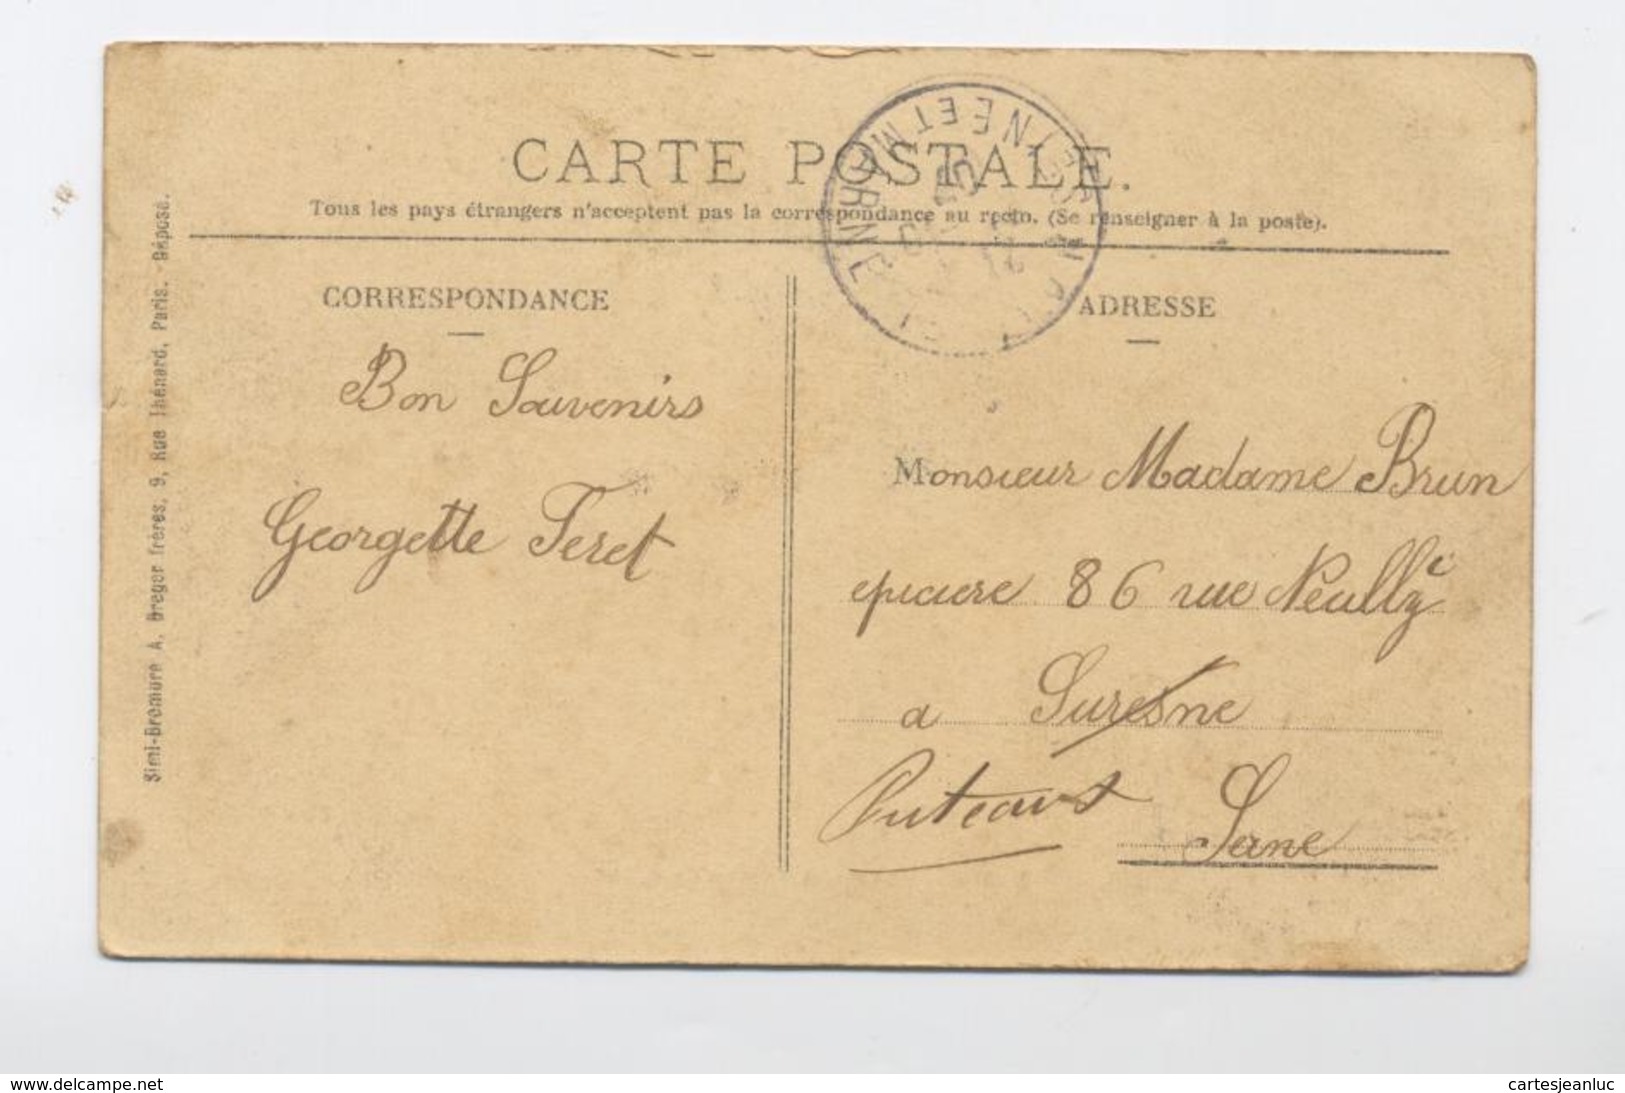 CARTE POSTALE.
Tous les pays étrangers n'acceptent pas la correspondance au recto. (Se renseigner à la poste).
CORRESPONDANCE
ADRESSE
Bon Souvenirs
Georgette Feret
Monsieur Madame Brun
epiciere 86 rue Neuilly
a Suresne
Puteaux
Seine
Simi-Bromure A. Breger frères, 9, Rue Thénard, Paris. - Déposé.
SEINE ET MARNE
www.delcampe.net
cartesjeanluc